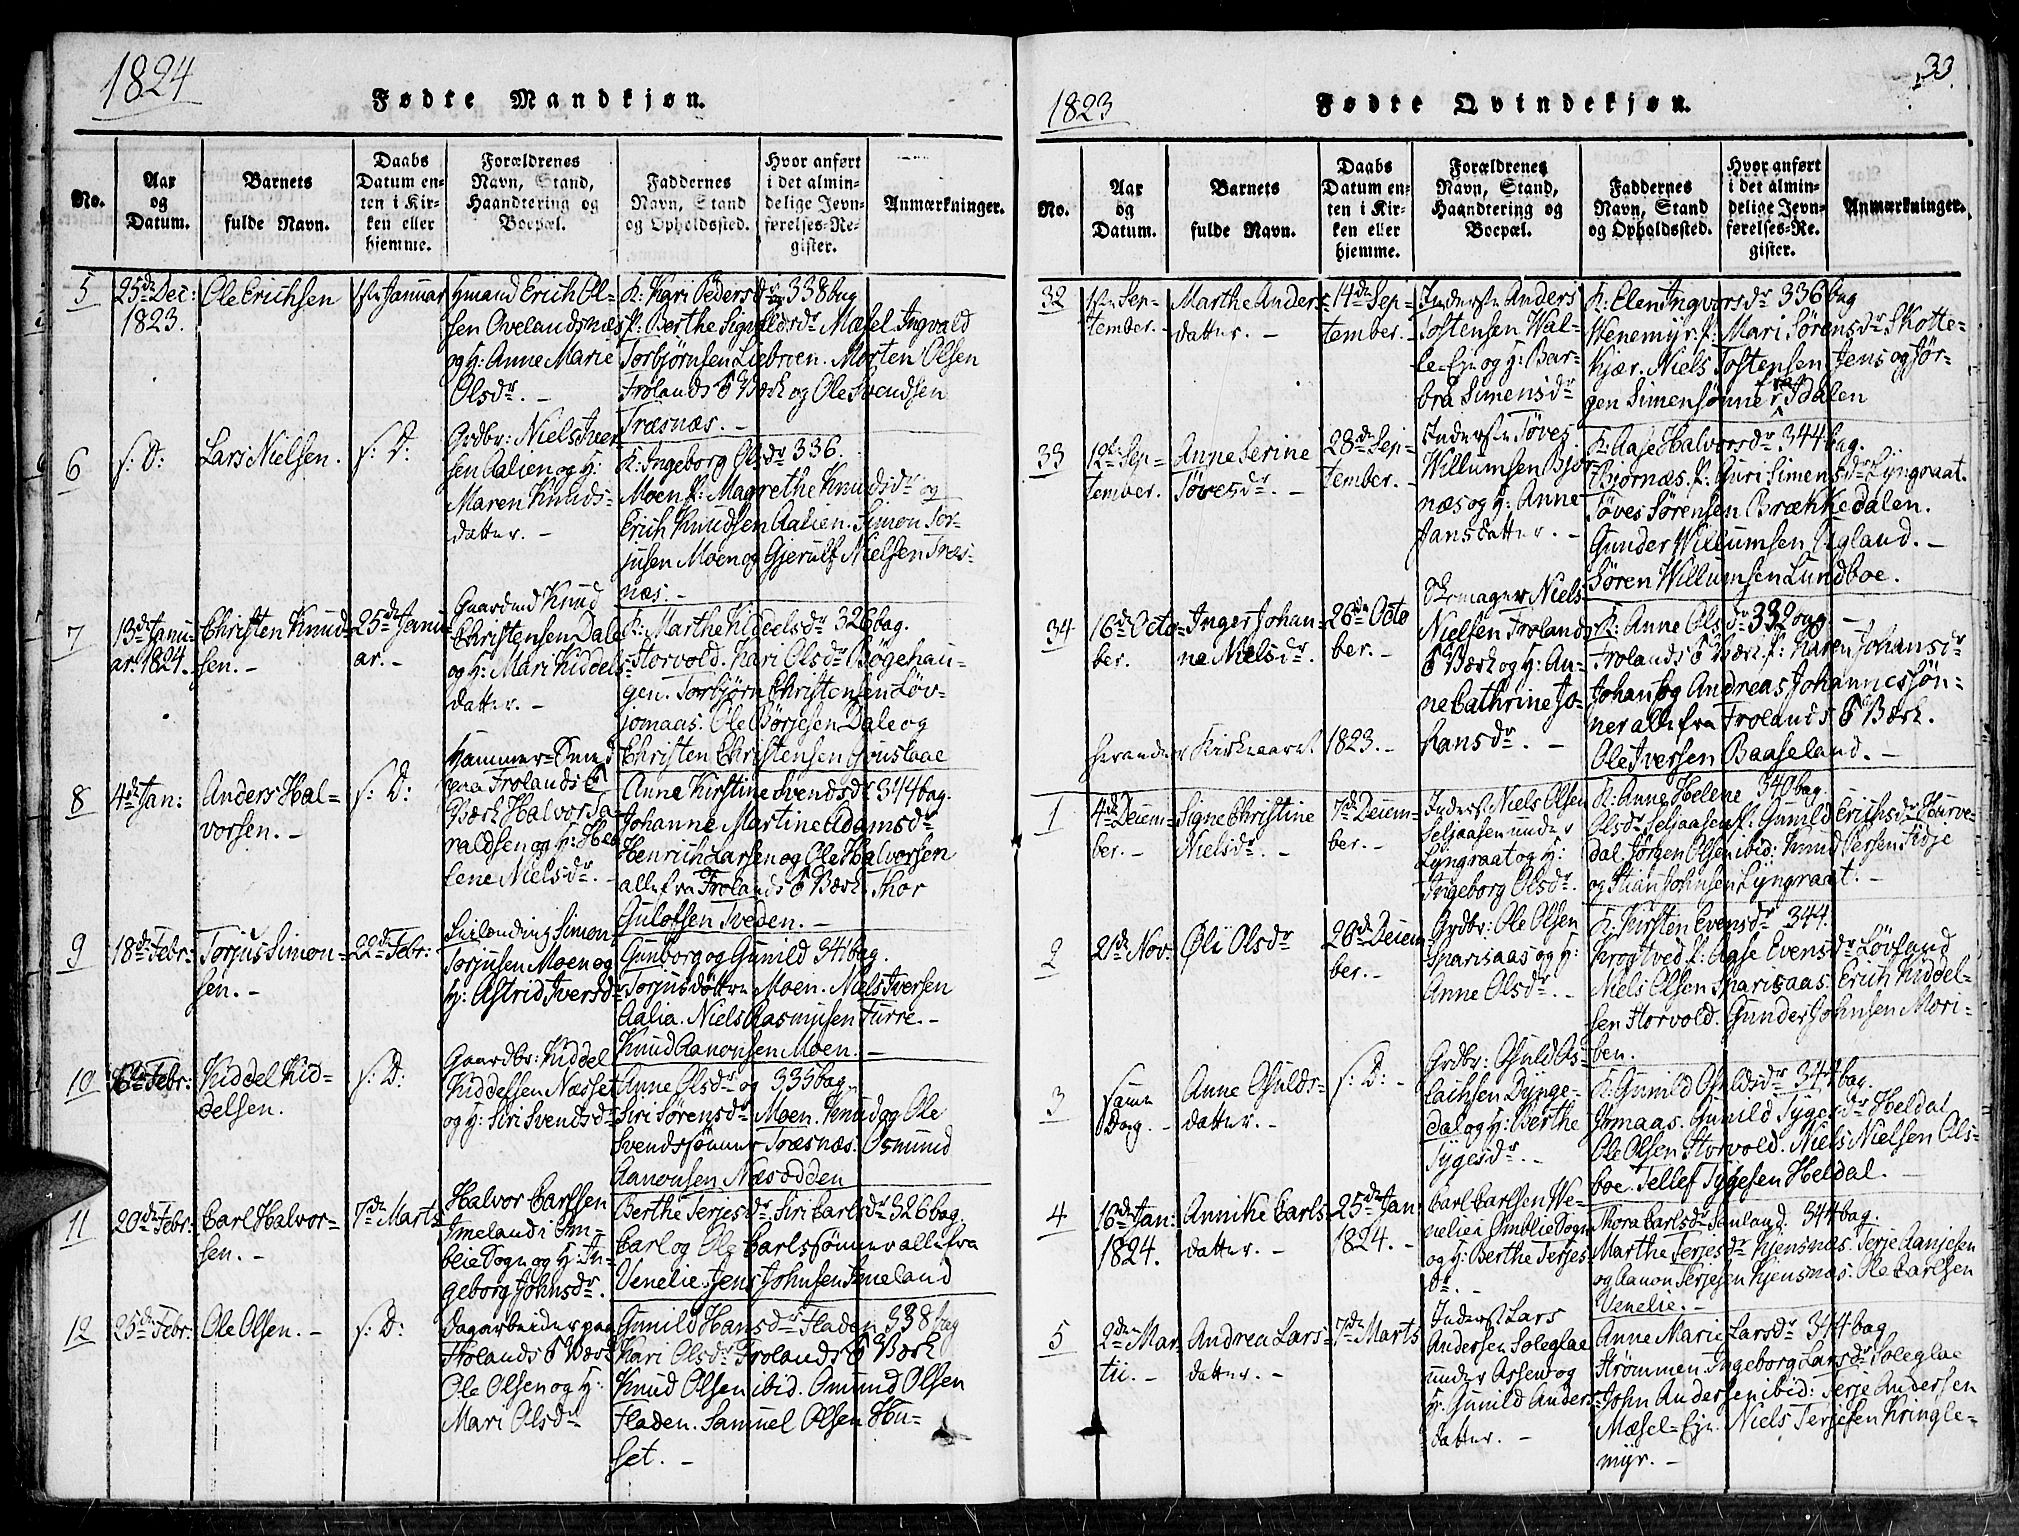 1824
Fødte Mandkjøn.
No.
Aar
og
Datum.
Barnets
fulde Navn.
Daabs
Datum en-
ten i Kir-
ken eller
hjemme.
Forældrenes
Navn, Stand,
Haandtering og
Boepæl.
Faddernes
Navn, Stand
og Opholdssted.
Hvor anført
i det almin-
delige Jevn-
førelses-Re-
gister.
Anmærkninger.
5
25de Dec:
1823.
Ole Erichsen
1ste Januar
Hmand Erich Ol-
sen Ovelandsnæs
og H: Anne Marie
Olsdr. -
K: Kari Pedersdr 338 bag
P: Berthe Sigvaldsdr Mæsel Ingvald
Torbjørnsen Liebroen. Morten Olsen
Frolands Værk og Ole Svendsen
Træsnæs. -
6
s: D:
Lars Nielsen.
s: D:
Grdbr: Niels Iver
sen Aalien og H:
Maren Knuds-
datter. -
K: Ingeborg Olsdr 336.
Moen P: Magrethe Knudsdr og
Erich Knudsen Aalien. Simon Tor-
jusen Moen og Gjerulf Nielsen Træs-
næs. -
7
13de Janu-
ar 1824.
Christen Knud-
sen. -
25de Janu-
ar. -
Gaardmd Knud
Christensen Dale
og H: Mari Kiddels-
datter. -
K: Marthe Kiddelsdr 326 bag.
Storvold. Kari Olsdr Bøgehau-
gen. Torbjørn Christensen Løv-
jomaas. Ole Børjesen Dale og
Christen Christensen
8
4de Jan:
Anders Hal-
vorsen. -
s: D:
Hammer-Smed
paa Frolands
Værk Halvor Ta
raldsen og H: He
lene Nielsdr. -
Anne Kirstine Svendsdr 344 bag.
Johanne Martine Adamsdr
Henrich Larsen og Ole Halvorsen
alle fra Frolands Værk. Thor
Gulofsen Tveden. -
9
18de Febr:
Torjus Simon-
sen. -
22de Febr:
Simon
Torjusen Moen og
H: Astrid Iversdr
Gunborg og Gunild 341 bag.
Torjusdøttre Moen. Niels Iversen
Aalia. Niels Aasmulsen Furre. -
Knud Aanonsen Moen. -
10
Febr:
Kiddel Kid-
delsen.
s: D:
Gaardbr: Kiddel
Kiddelsen Næsset
og H: Siri Svendsdr
Anne Olsdr og 335 bag
Siri Sørensdr Moen. Knud og Ole
Svendssønner Træsnæs. Osmund
Aanonsen Næsodden
11
20de Febr:
Carl Halvor-
sen. -
7de Marts
Halvor Carlsen
Imeland i Om-
blie Sogn og H: In-
geborg Johnsdr.
Berthe Terjesdr. Siri Carlsdr 326 bag.
Carl og Ole Carlssønner alle fra
Venelie. Jens Johnsen Imeland
12
25de Febr:
Ole Olsen. -
s: D:
Dagarbeider paa
Frolands Værk
Ole Olsen og H:
Mari Olsdr
Gunild Hansdr Fladen 338 bag
Kari Olsdr Frolands Værk
Knud Olsen ibid. Omund Olsen
Fladen. Samuel Olsen Hu-
set. -
33.
1823
Fødte Qvindekjøn.
No.
Aar
og
Datum.
Barnets
fulde Navn.
Daabs
Datum en-
ten i Kir-
ken eller
hjemme.
Forældrenes
Navn, Stand,
Haandtering og
Boepæl.
Faddernes
Navn, Stand
og Opholdssted.
Hvor anført
i det almin-
delige Jevn-
førelses-Re-
gister.
Anmærkninger.
32
1ste Sep-
tember. -
Marthe Anders-
datter. -
14de Sep-
tember. -
Inderste Anders
Tostensen Val-
le-Eje og H: Bar-
bra Simensdr
K: Elen Ingvorsdr 336 bag
Stenemyr. P: Mari Sørensdr Skotte-
kjær. Niels Tostensen. Jens og Jør-
gen Simensønne fra Idalen
33
12te Sep-
tember.
Anne Serine
Tøvesdr. -
28de Sep-
tember. -
Inderste Tøves
Willumsen Bjør
næs og H: Anne
Jansdatter. -
K: Aase Halvorsdr 344 bag.
Bjørnæs. P: Guri Simensdr Lyngraat.
Tøves Sørensen Brækkedalen.
Gunder Willumsen Ugland. -
Søren Willumsen Lundboe.
34
16de Octo-
ber.
Inger Johan-
ne Nielsdr.
26de Octo
ber. -
Skomager Niels
Nielsen Frolands
Værk og H: An-
ne Cathrine Jo-
hansdr. -
K: Anne Olsdr 332 bag -
Frolands Værk. P: Karen Johansdr
Johan og Andreas Johannessøn-
ner alle fra Frolands Værk.
Ole Iversen Baaseland. -
herander Kirkeaaret 1823. -
1
4de Decem-
ber. -
Signe Christine
Nielsdr. -
7de Decem-
ber. -
Inderst Niels Olsen
Seljaasen under
Lyngraat og H:
Ingeborg Olsdr.
K: Anne Helene 340 bag
Olsdr Seljaasen P: Gunild Erichsdr Hurve-
dal. Jørgen Olsen ibid: Knud Persen Tidje
og Stian Johnsen Lyngraat. -
2
21de Nov:
Øli Olsdr
26de Decem
ber. -
Grdbr: Ole Olsen
Sparisaas og H:
Anne Olsdr. -
K: Kirsten Evensdr 344.
Krogtved P: Aase Evensdr Løvland
Niels Olsen Sparisaas. Erich Kiddel-
sen Storvold. Gunder Johnsen Mori-
ben.
3
samme
Dag. -
Anne Osulds-
datter. -
s: D: -
Grdbr: Osuld As-
lachsen Dynge-
dal og H: Berthe
Tygesdr. -
K: Gunild Osuldsdr 344 bag.
Jomaas. Gunild Tygesdr Heldal
Ole Olsen Storvold. Niels Nielsen Ols-
boe. Tellef Tygesen Heldal.
4
16de Jan:
1824.
Annike Carls-
datter. -
25de Jan:
1824. -
Carl Carlsen Ve-
nelien Omblie Sogn
og H: Berthe Terjes
dr. -
Thora Carlsdr Senland. 344 bag.
Marthe Terjesdr Kjensnæs. Terje Aanjesen
og Aanon Terjesen Kjensnæs. Ole Carlsen
Venelie. -
5
2den Mar
tii. -
Andrea Lars-
datter. -
7de Marts
Inderst Lars
Andersen Soleglae
under Assen og
H: Gunild Anders-
datter. -
Anne Marie Larsdr 344 bag
Strømmen. Ingeborg Larsdr Soleglae
John Andersen ibid: Terje Andersen
Mæsel-Eje. Niels Terjesen Kringle-
myr. -